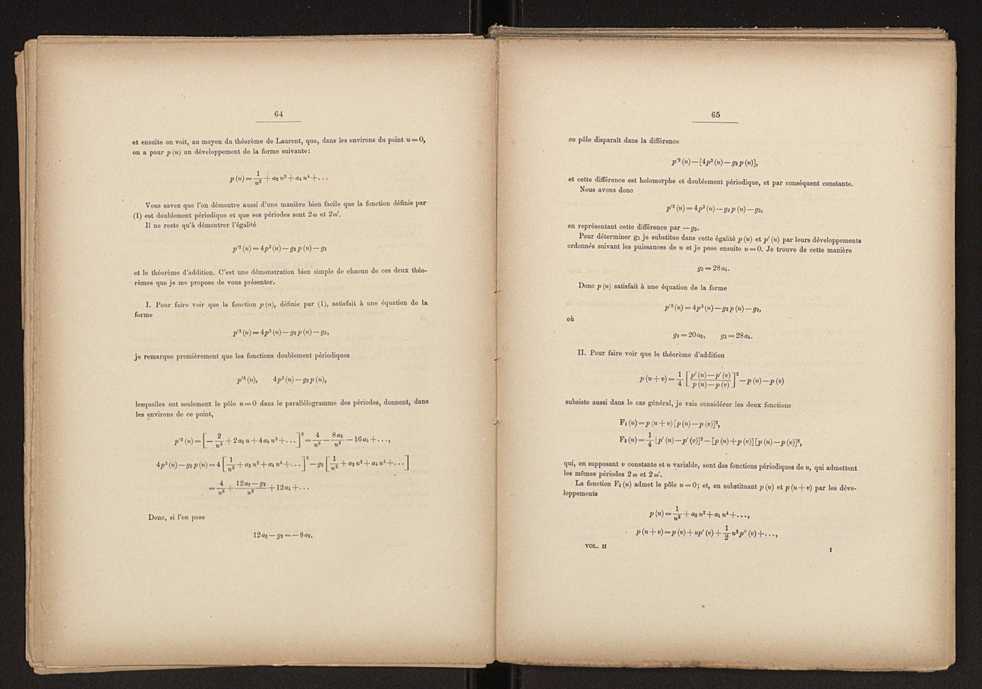 64
et ensuite on voit, au moyen du théorème de Laurent, que, dans les environs du point u = 0,
on a pour p (u) un développement de la forme suivante:
p (u) = 1/u² + a₂ u² + a₄ u⁴ + . . .
Vous savez que l'on démontre aussi d'une manière bien facile que la fonction définie par
(1) est doublement périodique et que ses périodes sont 2ω et 2ω'.
Il ne reste qu'à démontrer l'égalité
p'² (u) = 4p³ (u) — g₂ p (u) — g₃
et le théorème d'addition. C'est une démonstration bien simple de chacun de ces deux théo-
rèmes que je me propose de vous présenter.
I. Pour faire voir que la fonction p (u), définie par (1), satisfait à une équation de la
forme
p'² (u) = 4p³ (u) — g₂ p (u) — g₃,
je remarque premièrement que les fonctions doublement périodiques
p'² (u), 4p³ (u) — g₂ p (u),
lesquelles ont seulement le pôle u = 0 dans le parallélogramme des périodes, donnent, dans
les environs de ce point,
p'² (u) = [— 2/u³ + 2 a₂ u + 4 a₄ u³ + . . .]² = 4/u⁶ — 8 a₂/u² — 16 a₄ + . . .,
4p³ (u) — g₂ p (u) = 4 [1/u² + a₂ u² + a₄ u⁴ + . . .]³ — g₂ [1/u² + a₂ u² + a₄ u⁴ + . . .]
= 4/u⁶ + 12 a₂ — g₂/u² + 12 a₄ + . . .
Donc, si l'on pose
12 a₂ — g₂ = — 8 a₂,
65
ce pôle disparaît dans la différence
p'² (u) — [4p³ (u) — g₂ p (u)],
et cette différence est holomorphe et doublement périodique, et par conséquent constante.
Nous avons donc
p'² (u) = 4p³ (u) — g₂ p (u) — g₃,
en représentant cette différence par — g₃.
Pour déterminer g₃ je substitue dans cette égalité p (u) et p' (u) par leurs développements
ordonnés suivant les puissances de u et je pose ensuite u = 0. Je trouve de cette manière
g₃ = 28 a₄.
Donc p (u) satisfait à une équation de la forme
p'² (u) = 4p³ (u) — g₂ p (u) — g₃,
où
g₂ = 20 a₂, g₃ = 28 a₄.
II. Pour faire voir que le théorème d'addition
p (u + v) = 1/4 [p' (u) — p' (v)/p (u) — p (v)]² — p (u) — p (v)
subsiste aussi dans le cas général, je vais considérer les deux fonctions
F₁ (u) = p (u + v) [p (u) — p (v)]²,
F₂ (u) = 1/4 [p' (u) — p' (v)]² — [p (u) + p (v)] [p (u) — p (v)]²,
qui, en supposant v constante et u variable, sont des fonctions périodiques de u, qui admettent
les mêmes périodes 2 ω et 2 ω'.
La fonction F₁ (u) admet le pôle u = 0; et, en substituant p (u) et p (u + v) par les déve-
loppements
p (u) = 1/u² + a₂ u² + a₄ u⁴ + . . .,
p (u + v) = p (v) + up' (v) + 1/2 u² p'' (v) + . . .,
VOL. II
I